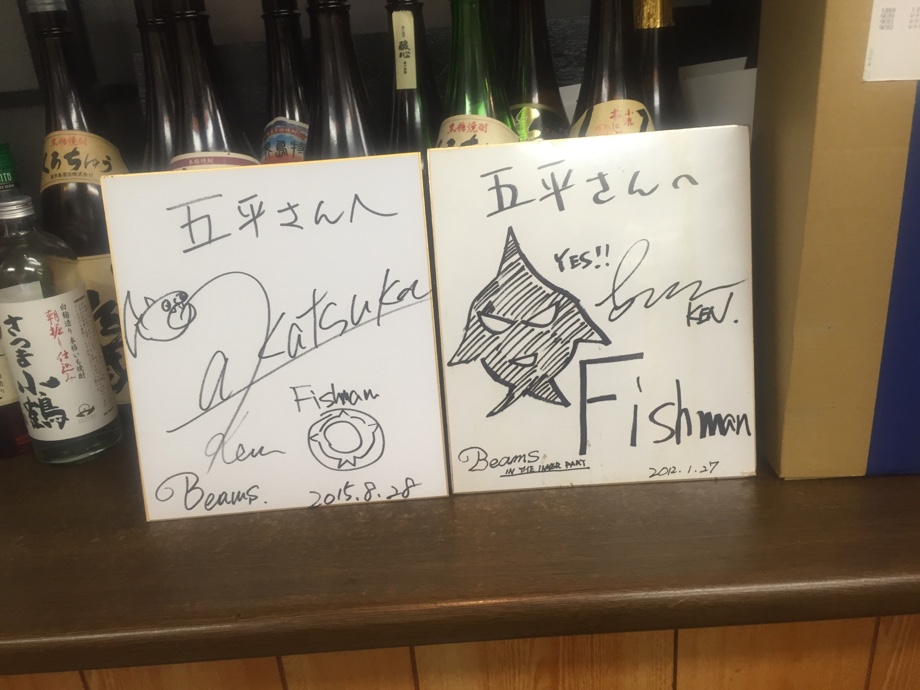 五平さんへ
akatsuka
Fishman
Ken
Beams.
2015.8.28
五平さんへ
YES!!
KEN.
Fishman
Beams
IN THE INNER PART
2012.1.27
黒糖焼酎
くろちゅう
本格焼酎
黒糖焼酎
白麹造り本格いも焼酎
さつま小鶴